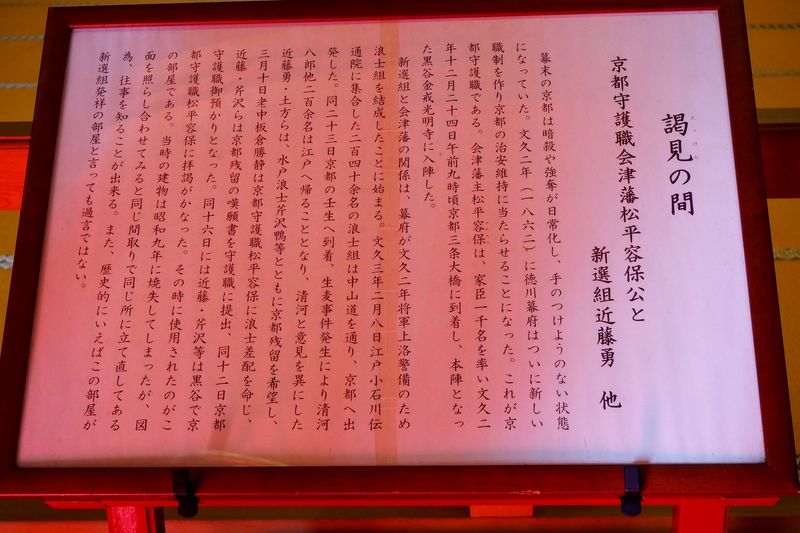 謁見の間
えっけん
京都守護職会津藩松平容保公と
新選組近藤勇　他
幕末の京都は暗殺や強奪が日常化し、手のつけようのない状態
になっていた。文久二年（一八六二）に徳川幕府はついに新しい
職制を作り京都の治安維持に当たらせることになった。これが京
都守護職である。会津藩主松平容保は、家臣一千名を率い文久二
年十二月二十四日午前九時頃京都三条大橋に到着し、本陣となっ
た黒谷金戒光明寺に入陣した。
新選組と会津藩の関係は、幕府が文久二年将軍上洛警備のため
浪士組を結成したことに始まる。文久三年二月八日江戸小石川伝
通院に集合した二百四十余名の浪士組は中山道を通り、京都へ出
発した。同二十三日京都の壬生へ到着、生麦事件発生により清河
八郎他二百余名は江戸へ帰ることとなり、清河と意見を異にした
近藤勇・土方らは、水戸浪士芹沢鴨等とともに京都残留を希望し、
三月十日老中板倉勝静は京都守護職松平容保に浪士差配を命じ、
近藤・芹沢らは京都残留の嘆願書を守護職に提出、同十二日京都
守護職御預かりとなった。同十六日には近藤・芹沢等は黒谷で京
都守護職松平容保に拝謁がかなった。その時に使用されたのがこ
の部屋である。当時の建物は昭和九年に焼失してしまったが、図
面を照らし合わせてみると同じ間取りで同じ所に立て直してある
為、往事を知ることが出来る。また、歴史的にいえばこの部屋が
新選組発祥の部屋と言っても過言ではない。